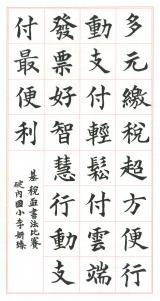 多元繳稅超方便行
動支付輕鬆付雲端
發票好智慧行動支
付最便利
基稅盃書法比賽
碇內國小李妍臻